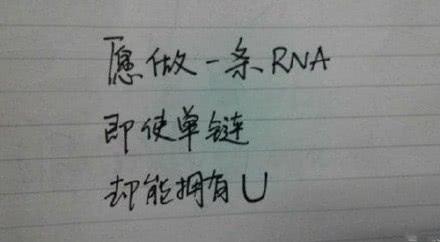 愿做一条RNA
即使单链
却能拥有U